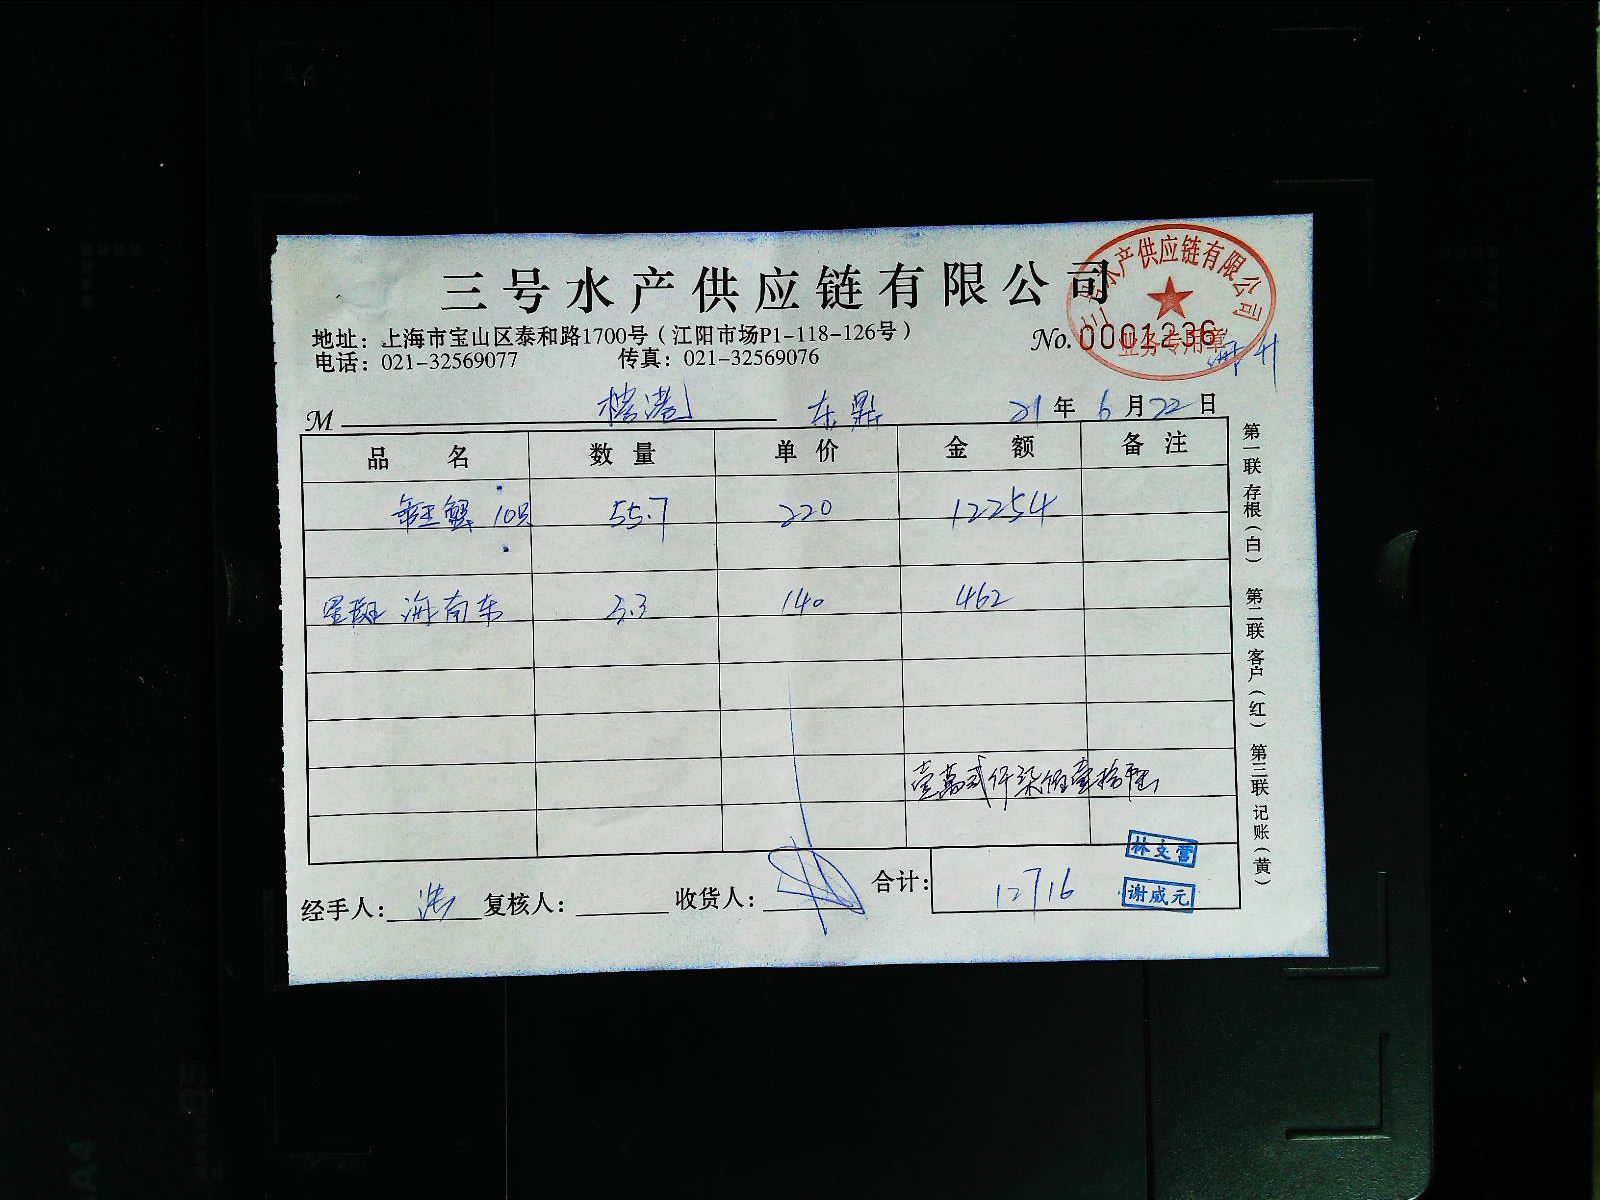 三号水产供应链有限公司
三号水产供应链有限公司
业务专用章
地址：上海市宝山区泰和路1700号（江阳市场P1-118-126号）
No.0001236
电话：021-32569077 传真：021-32569076
M 东鼎 21年6月22日
品名 数量 单价 金额 备注
王蟹 10只 55.7 220 12254
星斑 海南东 3.3 140 462
壹萬贰仟柒佰壹拾陆
经手人： 复核人： 收货人： 合计：12716
林文营
谢威元
第一联 存根（白） 第二联 客户（红） 第三联 记账（黄）